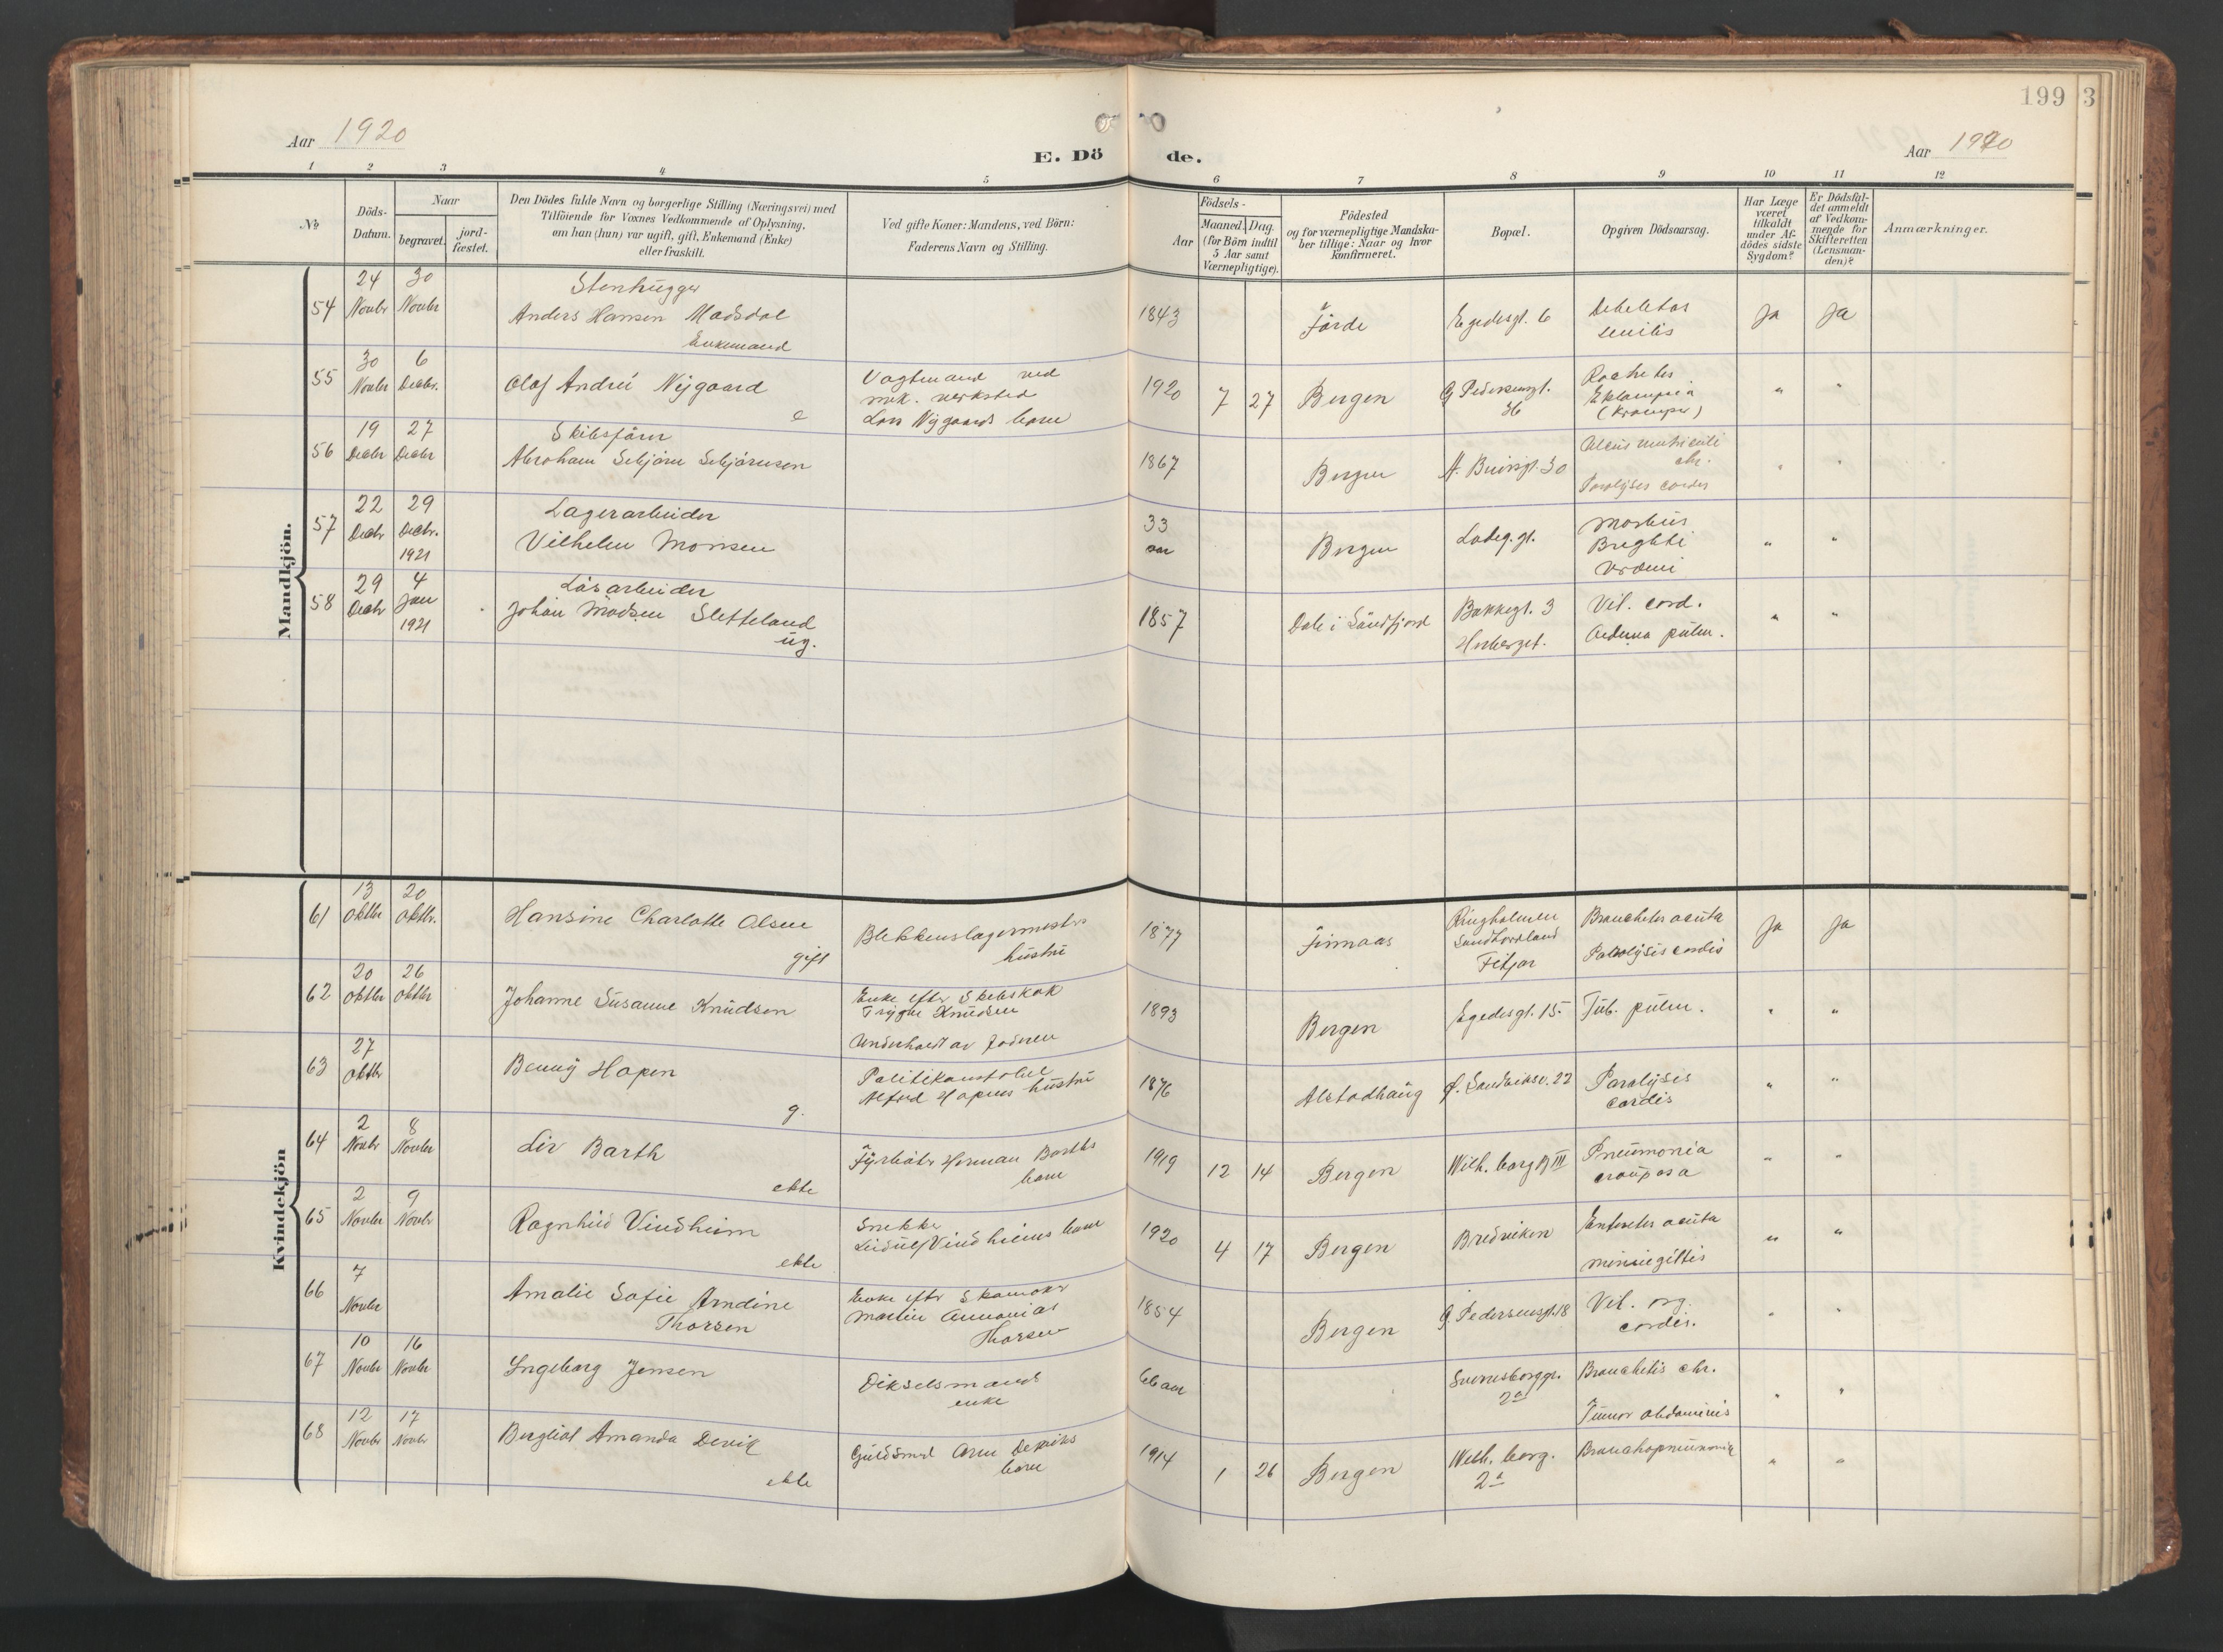 199 3
Aar 1920
E. Dö de.
Aar 1920
1 2 3 4 5 6 7 8 9 10 11 12
No
Döds-Datum.
Naar
begravet.
jord-fæstet.
Den Dödes fulde Navn og borgerlige Stilling (Næringsvei) med
Tilföiende for Voxnes Vedkommende af Oplysning,
om han (hun) var ugift, gift, Enkemand (Enke)
eller fraskilt.
Ved gifte Koner: Mandens, ved Börn:
Faderens Navn og Stilling.
Födsels-
Aar
Maaned. Dag.
(for Börn indtil
5 Aar samt
Værnepligtige).
Födested
og for værnepligtige Mandska-
ber tillige: Naar og hvor
konfirmeret.
Bopæl.
Opgiven Dödsaarsag.
Har Læge
været
tilkaldt
under Af-
dödes sidste
Sygdom?
Er Dödsfal-
det anmeldt
af Vedkom-
mende for
Skifteretten
(Lensman-
den)?
Anmærkninger.
Mandkjön.
54 24 Novbr 30 Novbr Stenhugger
Anders Hansen Madsdal
Enkemand
1843 Förde Egedesgt. 6
senilis
Ja Ja
55 30 Novbr 6 Decbr. Olaf Andreé Nygaard
e
Vagtmand ved
mek. verksted
Lars Nygaards barn
1920 7 27 Bergen G Pedersensgt.
36
Rachetis
Eklampsia
(Kramper)
" "
56 19 Decbr 27 Decbr Skibsfører
Abraham Selijørn Selijørnsen
1867 Bergen A. Bruunsgt. 30
Ulcus ventriculi
chr.
Paralyses cordis
" "
57 22 Decbr 29 Decbr. 1921 Lagerarbeider
Vilhelm Monsen
33
aar
Bergen Ladeg. gt.
Morbus
Brightii
" "
58 29 Decbr 4 Jan 1921 Løsarbeider
Johan Madsen Sletteland
ug.
1857 Dale i Søndfjord Bakkegt. 3
Herberget.
Vit. cord.
Oedema pulm.
" "
Kvindekjön
61 13 Oktbr 20 Oktbr. Hansine Charlotte Olsen
gift
Blikkenslagermesters
hustru
1877 Finnaas Ringholmen
Søndhordland
Fitjar
Bronchetes acuta
Paralysis cordis
Ja Ja
62 20 Oktbr 26 Oktbr Johanne Susanne Knudsen
Enke efter Skibskok
Trygve Knudsen
Underholdt av foderen
1893 Bergen Egedesgt. 15. Tub. pulm.
" "
63 27 Oktbr Benny Hopen
g.
Politikonstabel
Alfred Hopens hustru
1876 Alstadhaug Ø. Sandviksv. 22 Paralysis
cordis
" "
64 2 Novbr 8 Novbr Liv Barth
ekte
Fyrbøter Herman Barths
barn
1919 12 14 Bergen Wilh. borg 19 III Pneumonia
crouposa
" "
65 2 Novbr 9 Novbr Ragnhild Vindheim
ekte
Snekker
Leidulf Vindheims barn
1920 4 17 Bergen Bredviken Enteretes acuta
miningittis
" "
66 7 Novbr Amalie Sofie Arndine
Thorsen
Enke efter Skomaker
Martin Annanias
Thorsen
1854 Bergen G. Pedersensgt. 18 Vit. org.
cordis.
" "
67 10 Novbr 16 Novbr Ingeborg Jensen
Dikselsmands
enke
66 aar Sverresborggt.
2a
Bronchitis chr.
Tumor abdominis
" "
68 12 Novbr 17 Novbr Bergliot Amanda Devik
ekte
Guldsmed Arne Deviks
barn
1914 1 26 Bergen Wilh. borg.
2a
Bronchopneumonia
" "